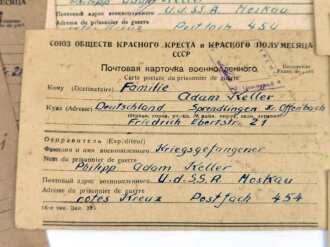 Philipp Adam Keller
Почтовый адрес военнопленного U.d.S.S.R. Moskau
Adresse du prisonnier de guerre
rotes Kreuz Postfach 454
СОЮЗ ОБЩЕСТВ КРАСНОГО КРЕСТА и КРАСНОГО ПОЛУМЕСЯЦА
СССР
Почтовая карточка военнопленного
Carte postale du prisonnier de guerre
Franc de port
Кому (Destinataire) Familie
Adam Keller
Куда (Adresse) Deutschland Sprendlingen Kr. Offenbach
Friedrich Ebertstr. 21
Отправитель (Expéditeur)
Фамилия и имя военнопленного Kriegsgefangener
Nom du prisonnier de guerre
Philipp Adam Keller
Почтовый адрес военнопленного U.d.S.S.R. Moskau
Adresse du prisonnier de guerre
rotes Kreuz Postfach 454